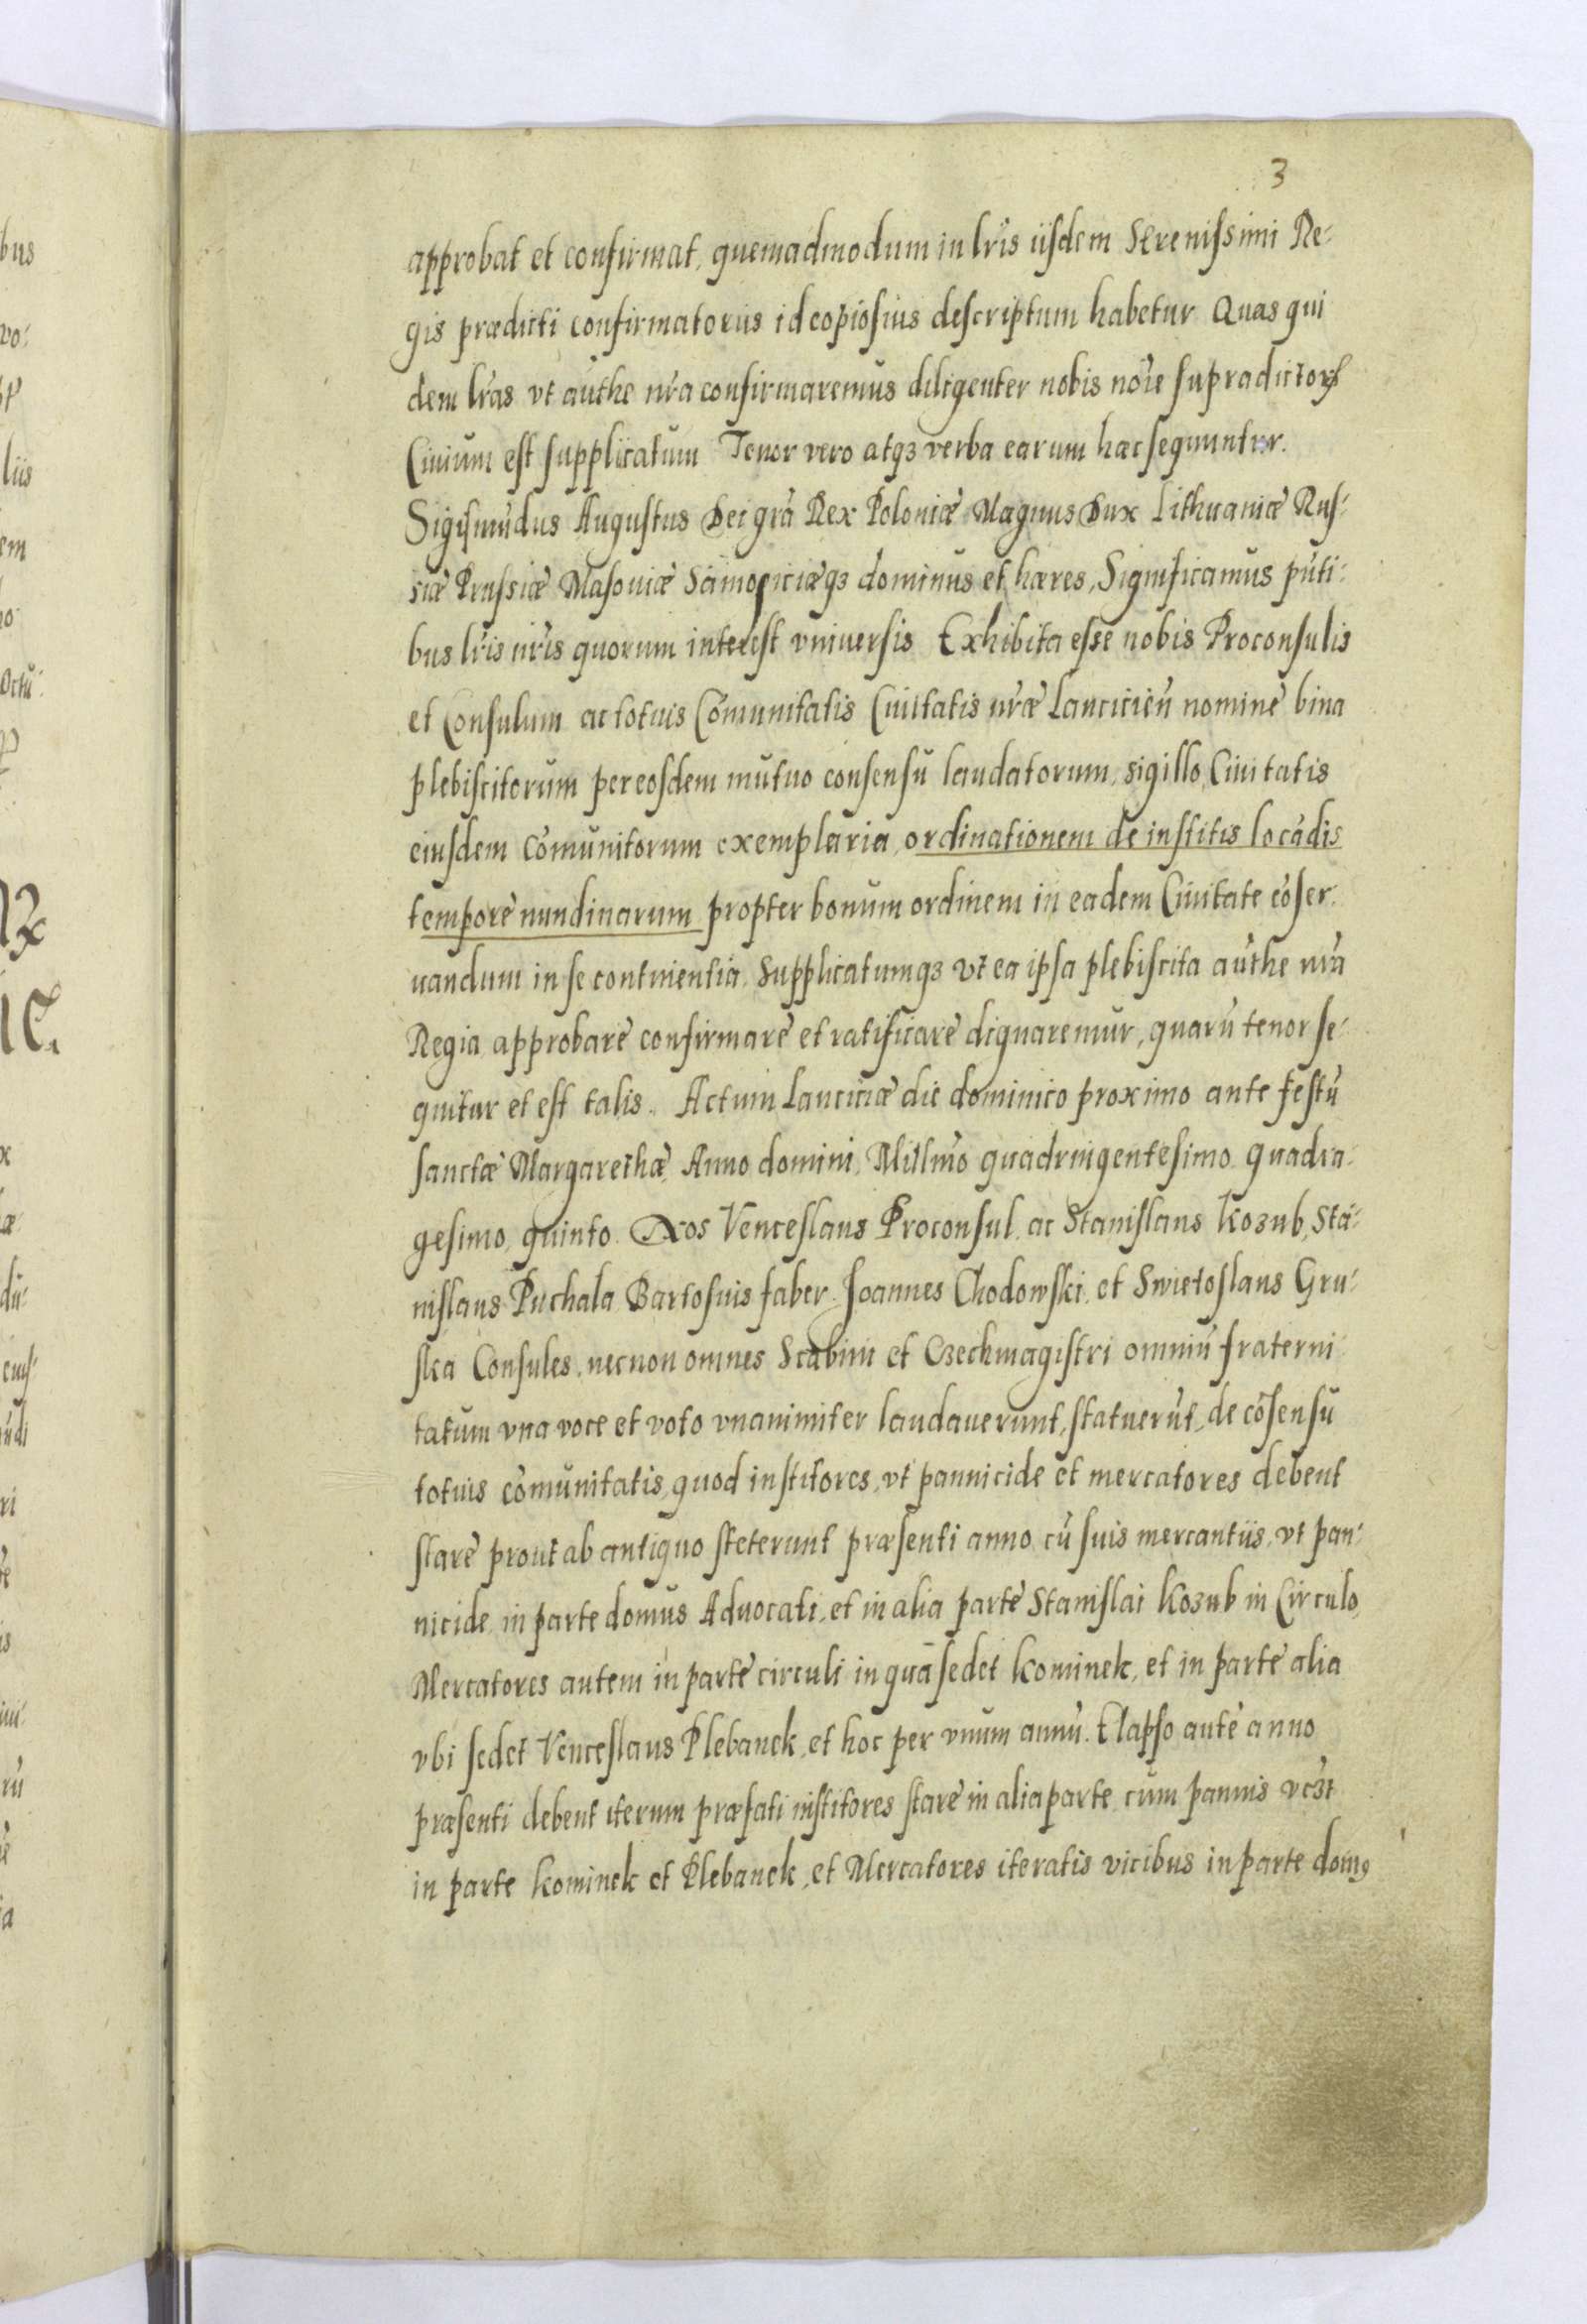 3
approbat et confirmat, quemadmodum in lr̃is iisdem Serenissimi Re-
gis prædicti confirmatoriis id copiosius descriptum habetur Quas qui
dem lr̃as vt authe nr̃a confirmaremus diligenter nobis noĩe supradictorꝝ
Ciuium est supplicatum Tenor vero atqꝫ verba earum hæc sequuntur.
Sigismũdus Augustus Dei gr̃a Rex Poloniæ Magnus Dux Lithuaniæ Rus-
siæ Prussiæ Masouiæ Samogiciæqꝫ dominus et hæres, Significamus pñti-
bus lr̃is nr̃is quorum interest vniuersis Exhibita esse nobis Proconsulis
et Consulum ac totius Cõmunitatis Ciuitatis nr̃æ Lanciciẽn nomine bina
plebiscitorum per eosdem mutuo consensu laudatorum, sigillo Ciuitatis
eiusdem cõmunitorum exemplaria, ordinationem de institis locãdis
tempore nundinarum propter bonum ordinem in eadem Ciuitate cõser-
uandum in se continentia. Supplicatumqꝫ vt ea ipsa plebiscita authe nr̃a
Regia approbare confirmare et ratificare dignaremur, quarũ tenor se-
quitur et est talis. Actum Lanciciæ die dominico proximo ante festũ
sanctæ Margarethæ, Anno domini, Millm̃o quadringentesimo quadra-
gesimo, quinto. Nos Venceslaus Proconsul, ac Stanislaus Kozub, Sta-
nislaus Puchala Bartosius faber, Joannes Chodowski, et Swietoslaus Gru-
ska Consules, necnon omnes Scabini et Czechmagistri omniũ fraterni-
tatum vna voce et voto vnanimiter laudauerunt, statuerũt, de cõsensu
totius cõmunitatis, quod institores, vt pannicide et mercatores debent
stare prout ab antiquo steterunt præsenti anno cũ suis mercantiis, vt pan-
nicide in parte domus Aduocati, et in alia parte Stanislai Kozub in Circulo
Mercatores autem in parte circuli in quã sedet Kominek, et in parte alia
vbi sedet Venceslaus Plebanek, et hoc per vnum annũ. Elapso autẽ anno
præsenti debent iterum præfati institores stare in alia parte cum pannis vcꝫt
in parte Kominek et Plebanek, et Mercatores iteratis vicibus in parte domꝰ